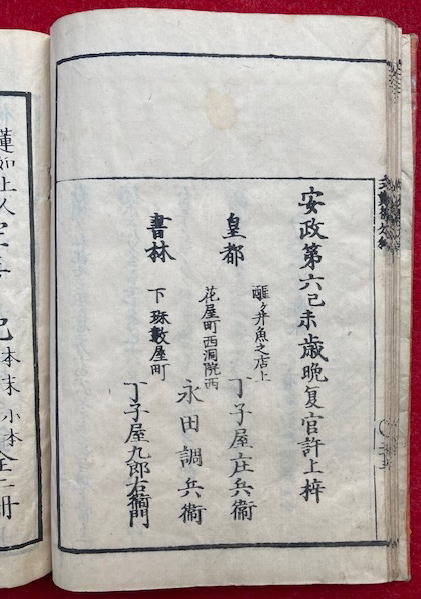 安政第六己未歳晩夏官許上梓
皇都
醒ヶ井魚之店上
丁子屋庄兵衞
花屋町西洞院西
永田調兵衞
書林
下珠數屋町
丁子屋九郎右衞門
蓮如上人
記 本末 小本 全二冊